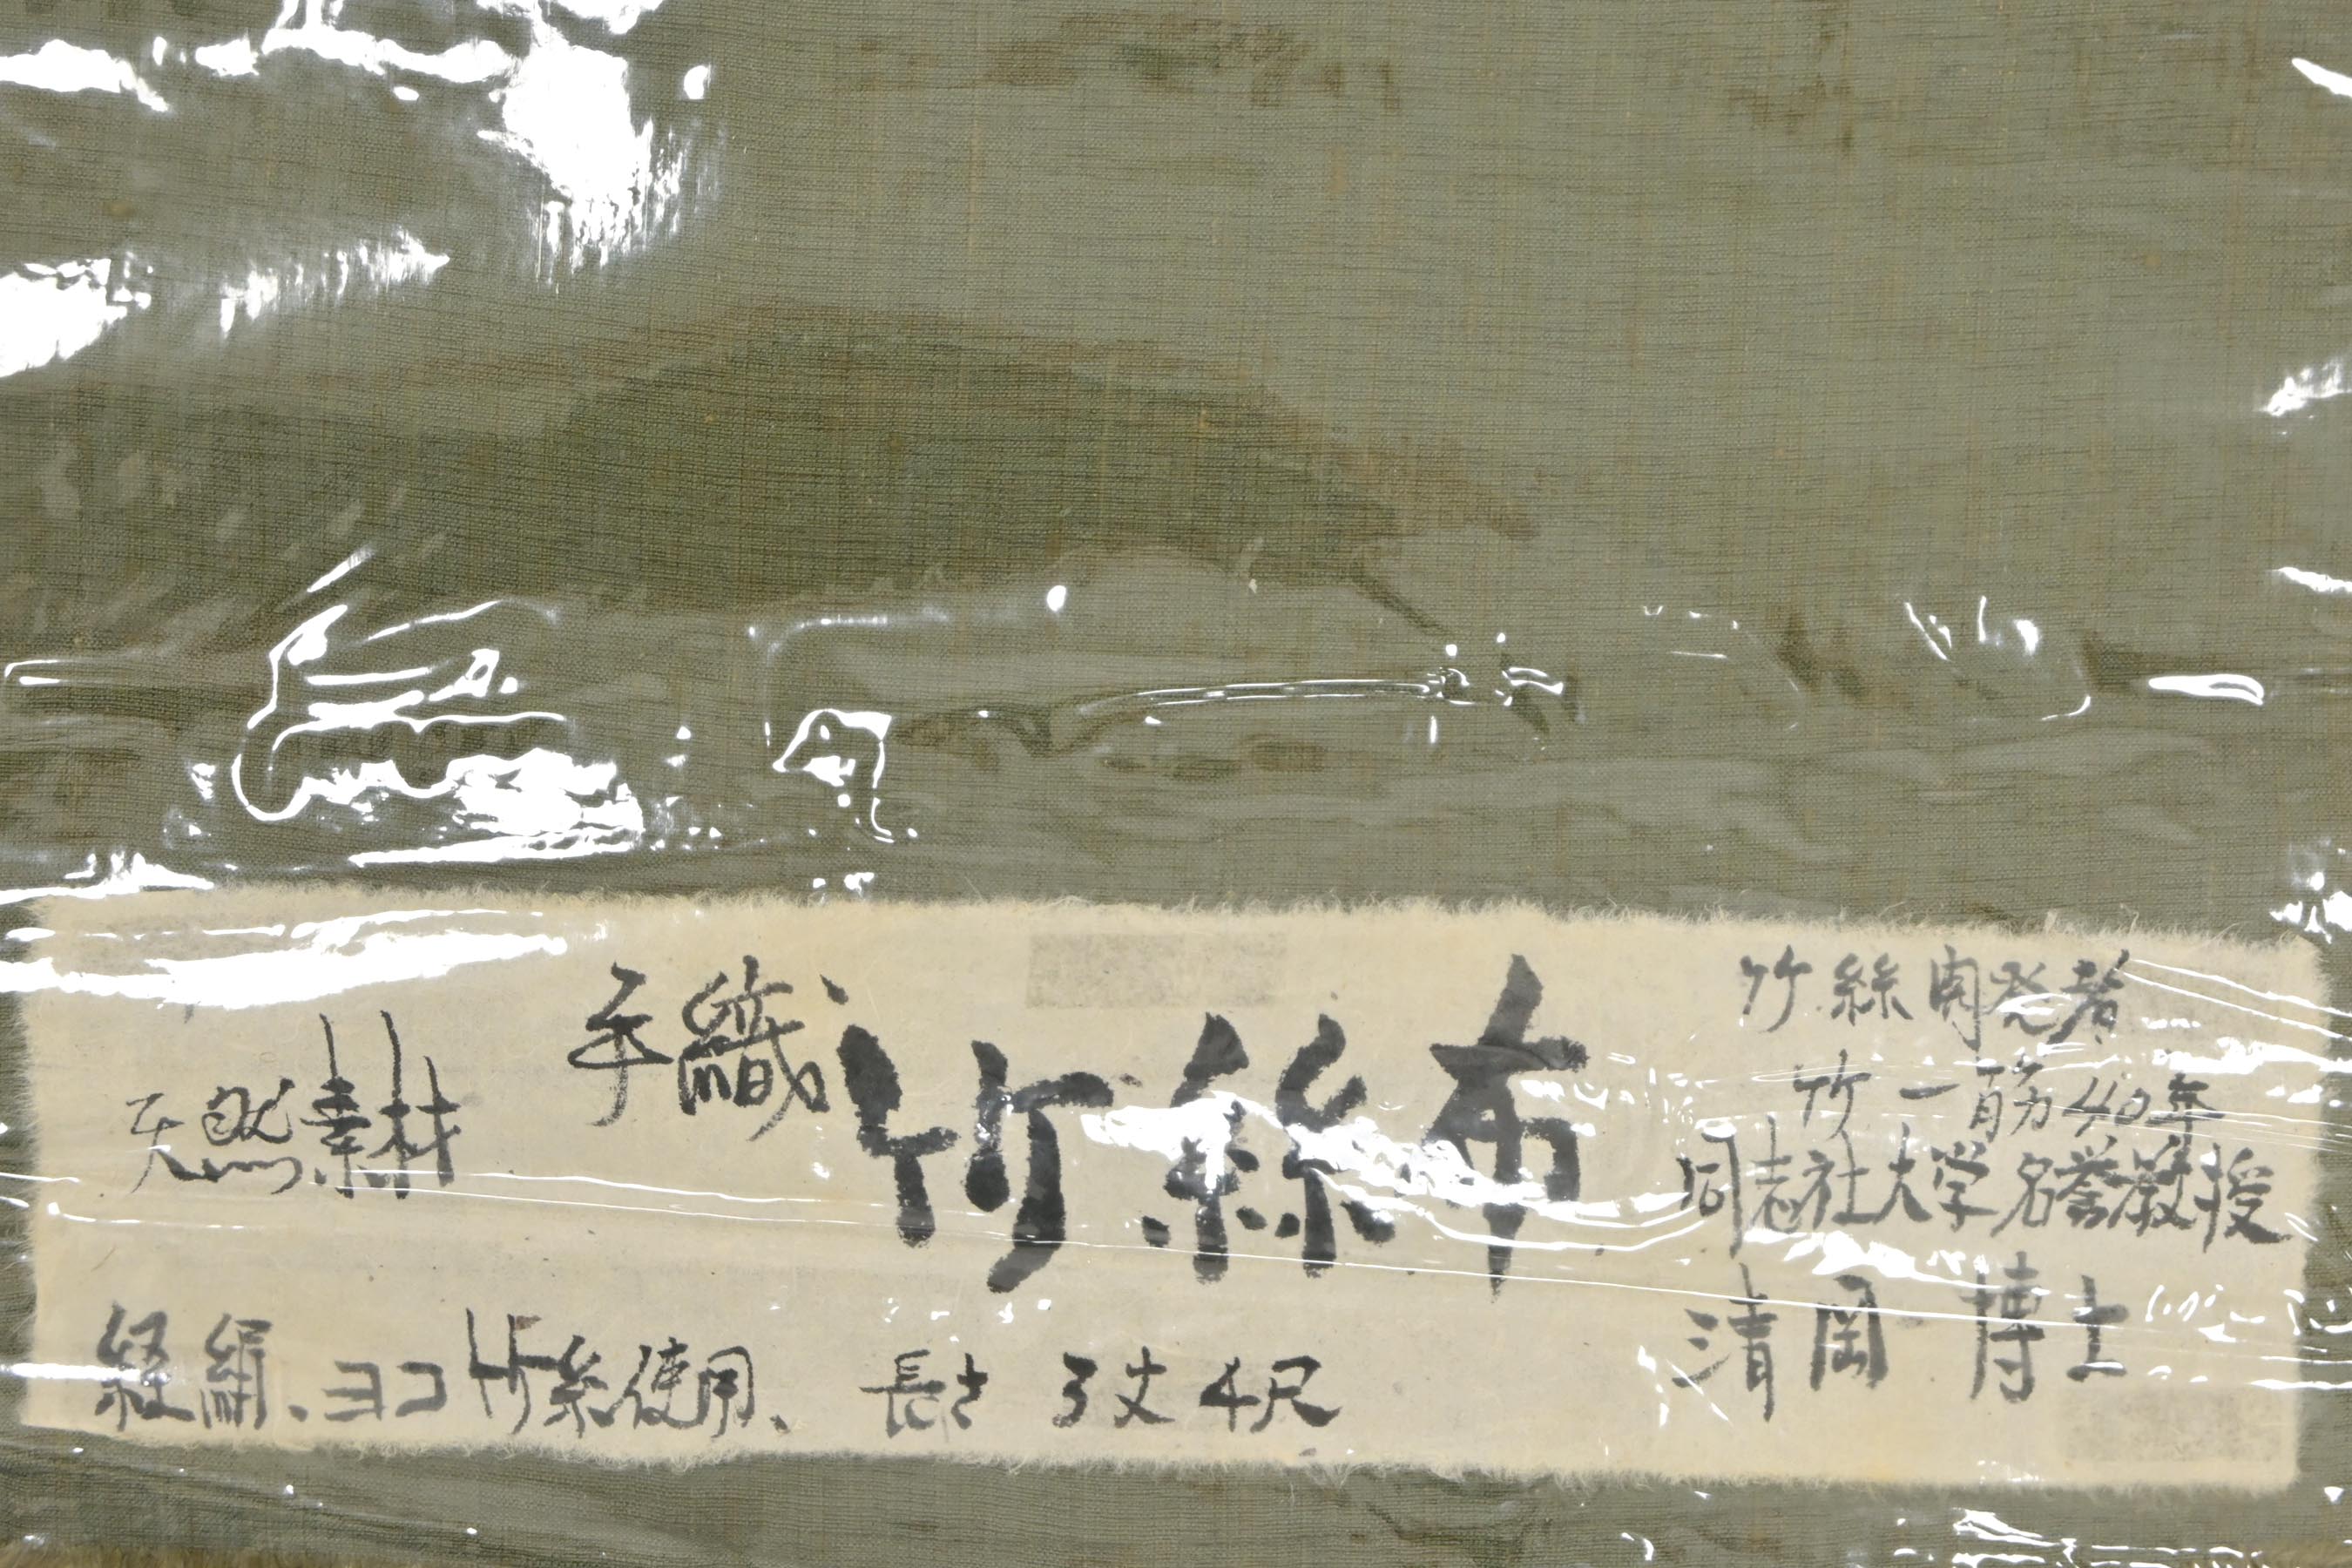 手織 竹絲布
天然素材
経絹、ヨコ竹糸使用、 長さ 3丈4尺
竹絲開発者
竹一筋40年
同志社大学名誉教授
清岡 博士